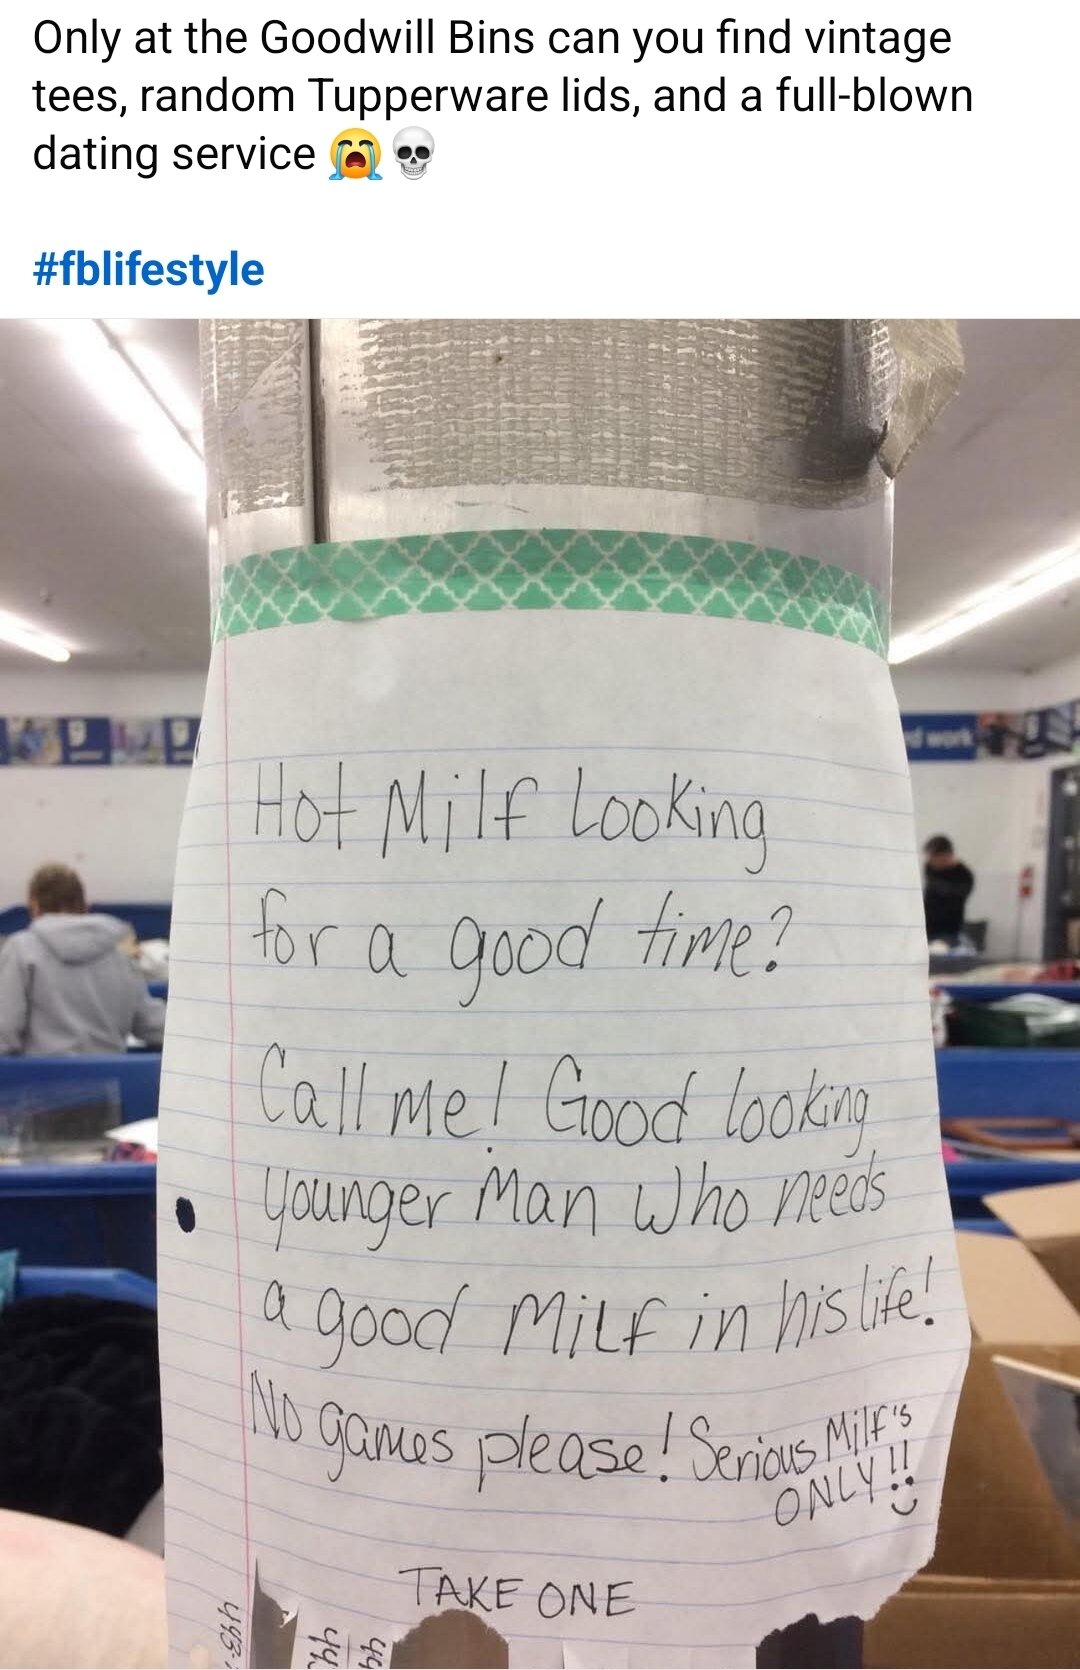 Only at the Goodwill Bins can you find vintage
tees, random Tupperware lids, and a full-blown
dating service 😭💀
#fblifestyle
d work
Hot Milf Looking
for a good time?
Call me! Good looking
younger Man Who needs
a good MiLf in his life!
No games please! Serious Milf's
ONLY!!
TAKE ONE
443-
44
44